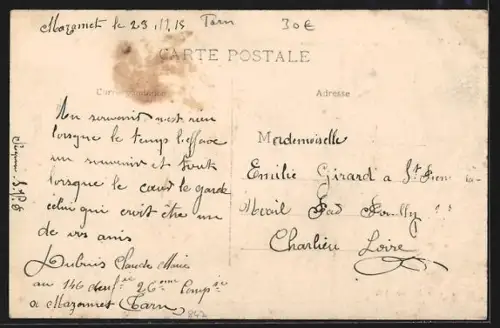 Mazamet le 23 11 15 Tarn 30€
CARTE POSTALE
Correspondance
Adresse
Un souvenir n'est rien
lorsque le temps l'efface
un souvenir et tout
lorsque le cœur le garde
celui qui croit être un
de vos amis
Dubuis Claude Marie
au 146 26eme Comp
a Mazamet (Tarn)
Mademoiselle
Emilie Girard a St
Charlieu Loire